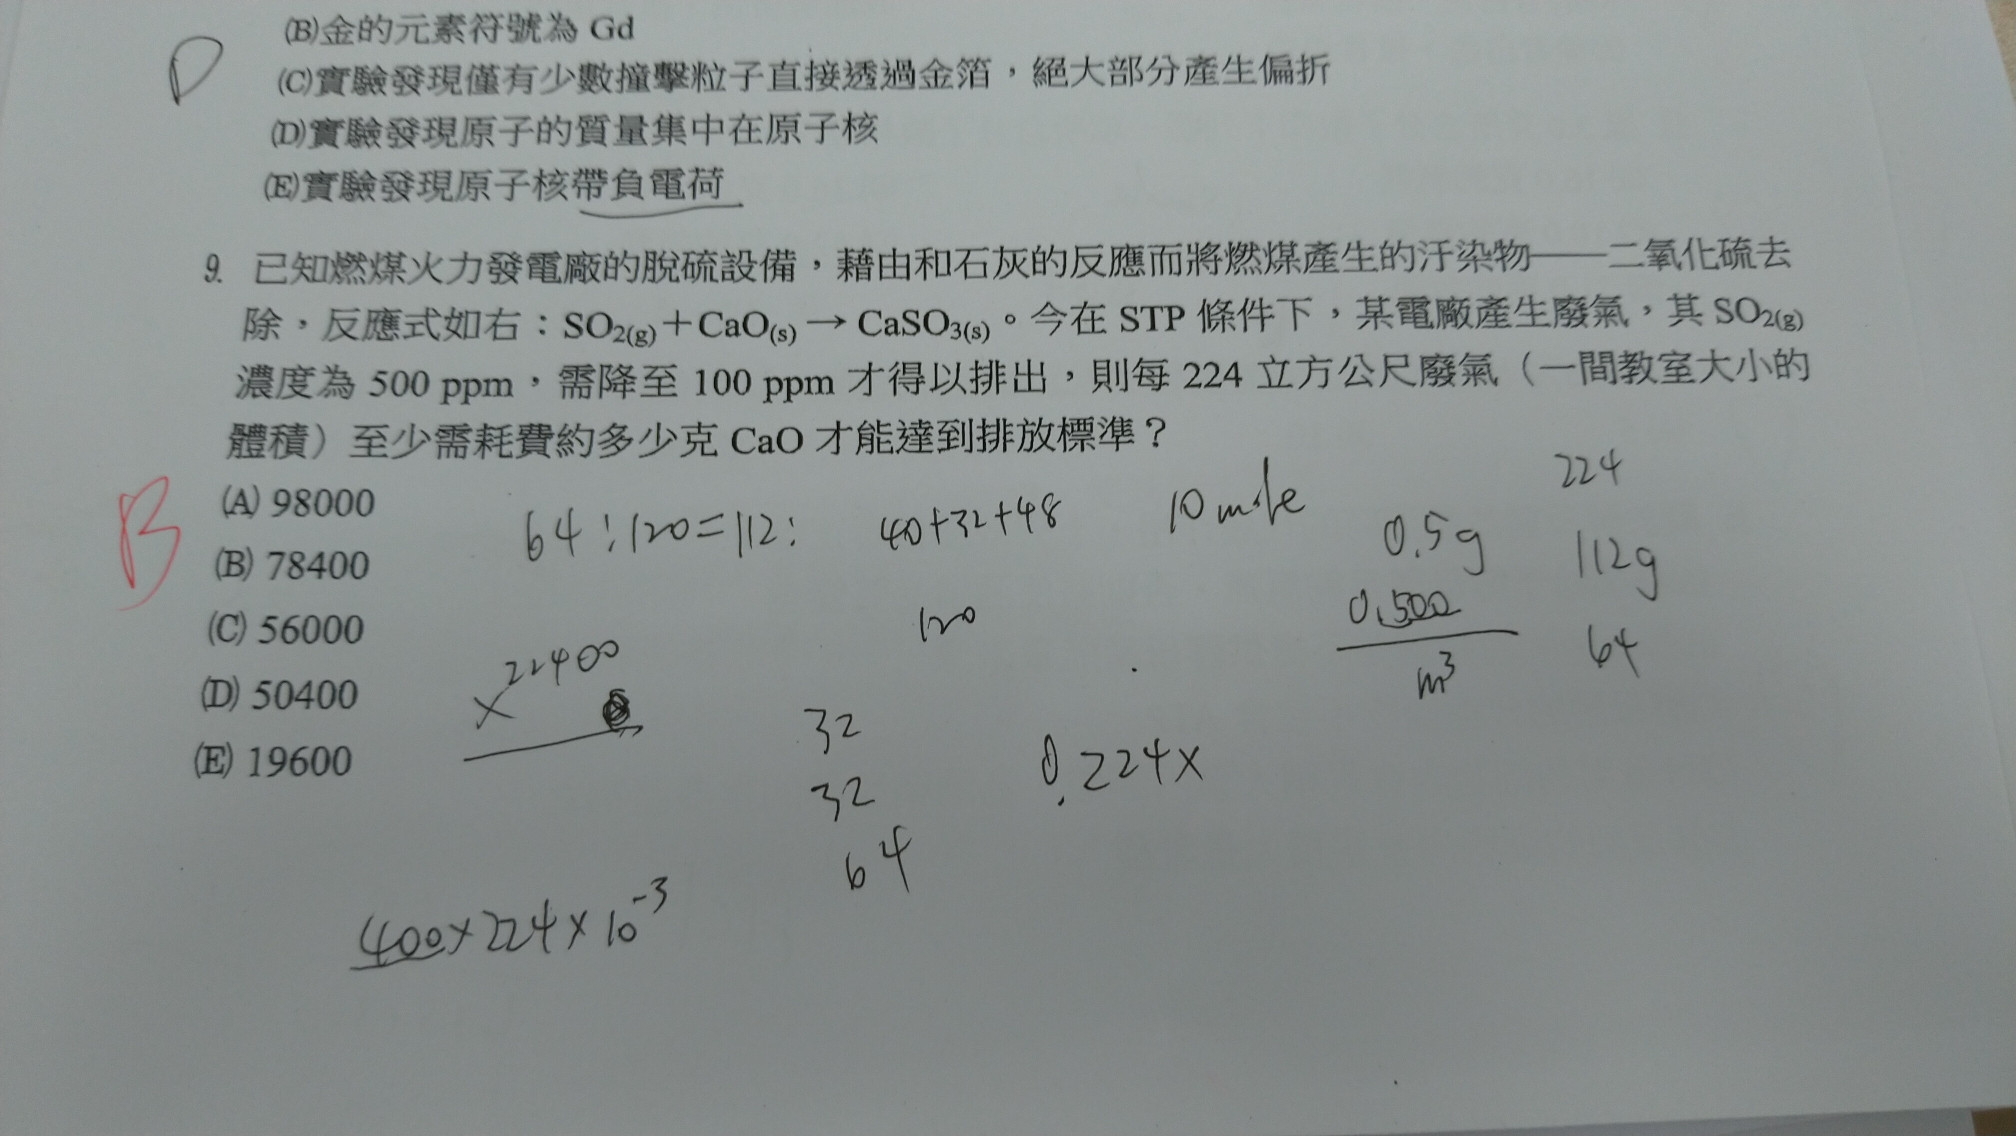 (B)金的元素符號為 Gd
D
(C)實驗發現僅有少數撞擊粒子直接透過金箔，絕大部分產生偏折
(D)實驗發現原子的質量集中在原子核
(E)實驗發現原子核帶負電荷
9. 已知燃煤火力發電廠的脫硫設備，藉由和石灰的反應而將燃煤產生的汙染物——二氧化硫去
除，反應式如右：SO2(g)＋CaO(s) → CaSO3(s)。今在 STP 條件下，某電廠產生廢氣，其 SO2(g)
濃度為 500 ppm，需降至 100 ppm 才得以排出，則每 224 立方公尺廢氣（一間教室大小的
體積）至少需耗費約多少克 CaO 才能達到排放標準？
B
(A) 98000
(B) 78400
(C) 56000
(D) 50400
(E) 19600
64:120=112:
40+32+48
120
10 mole
0.5g
0.500
m³
224
112g
64
×22400
32
32
64
0.224×
400×224×10⁻³